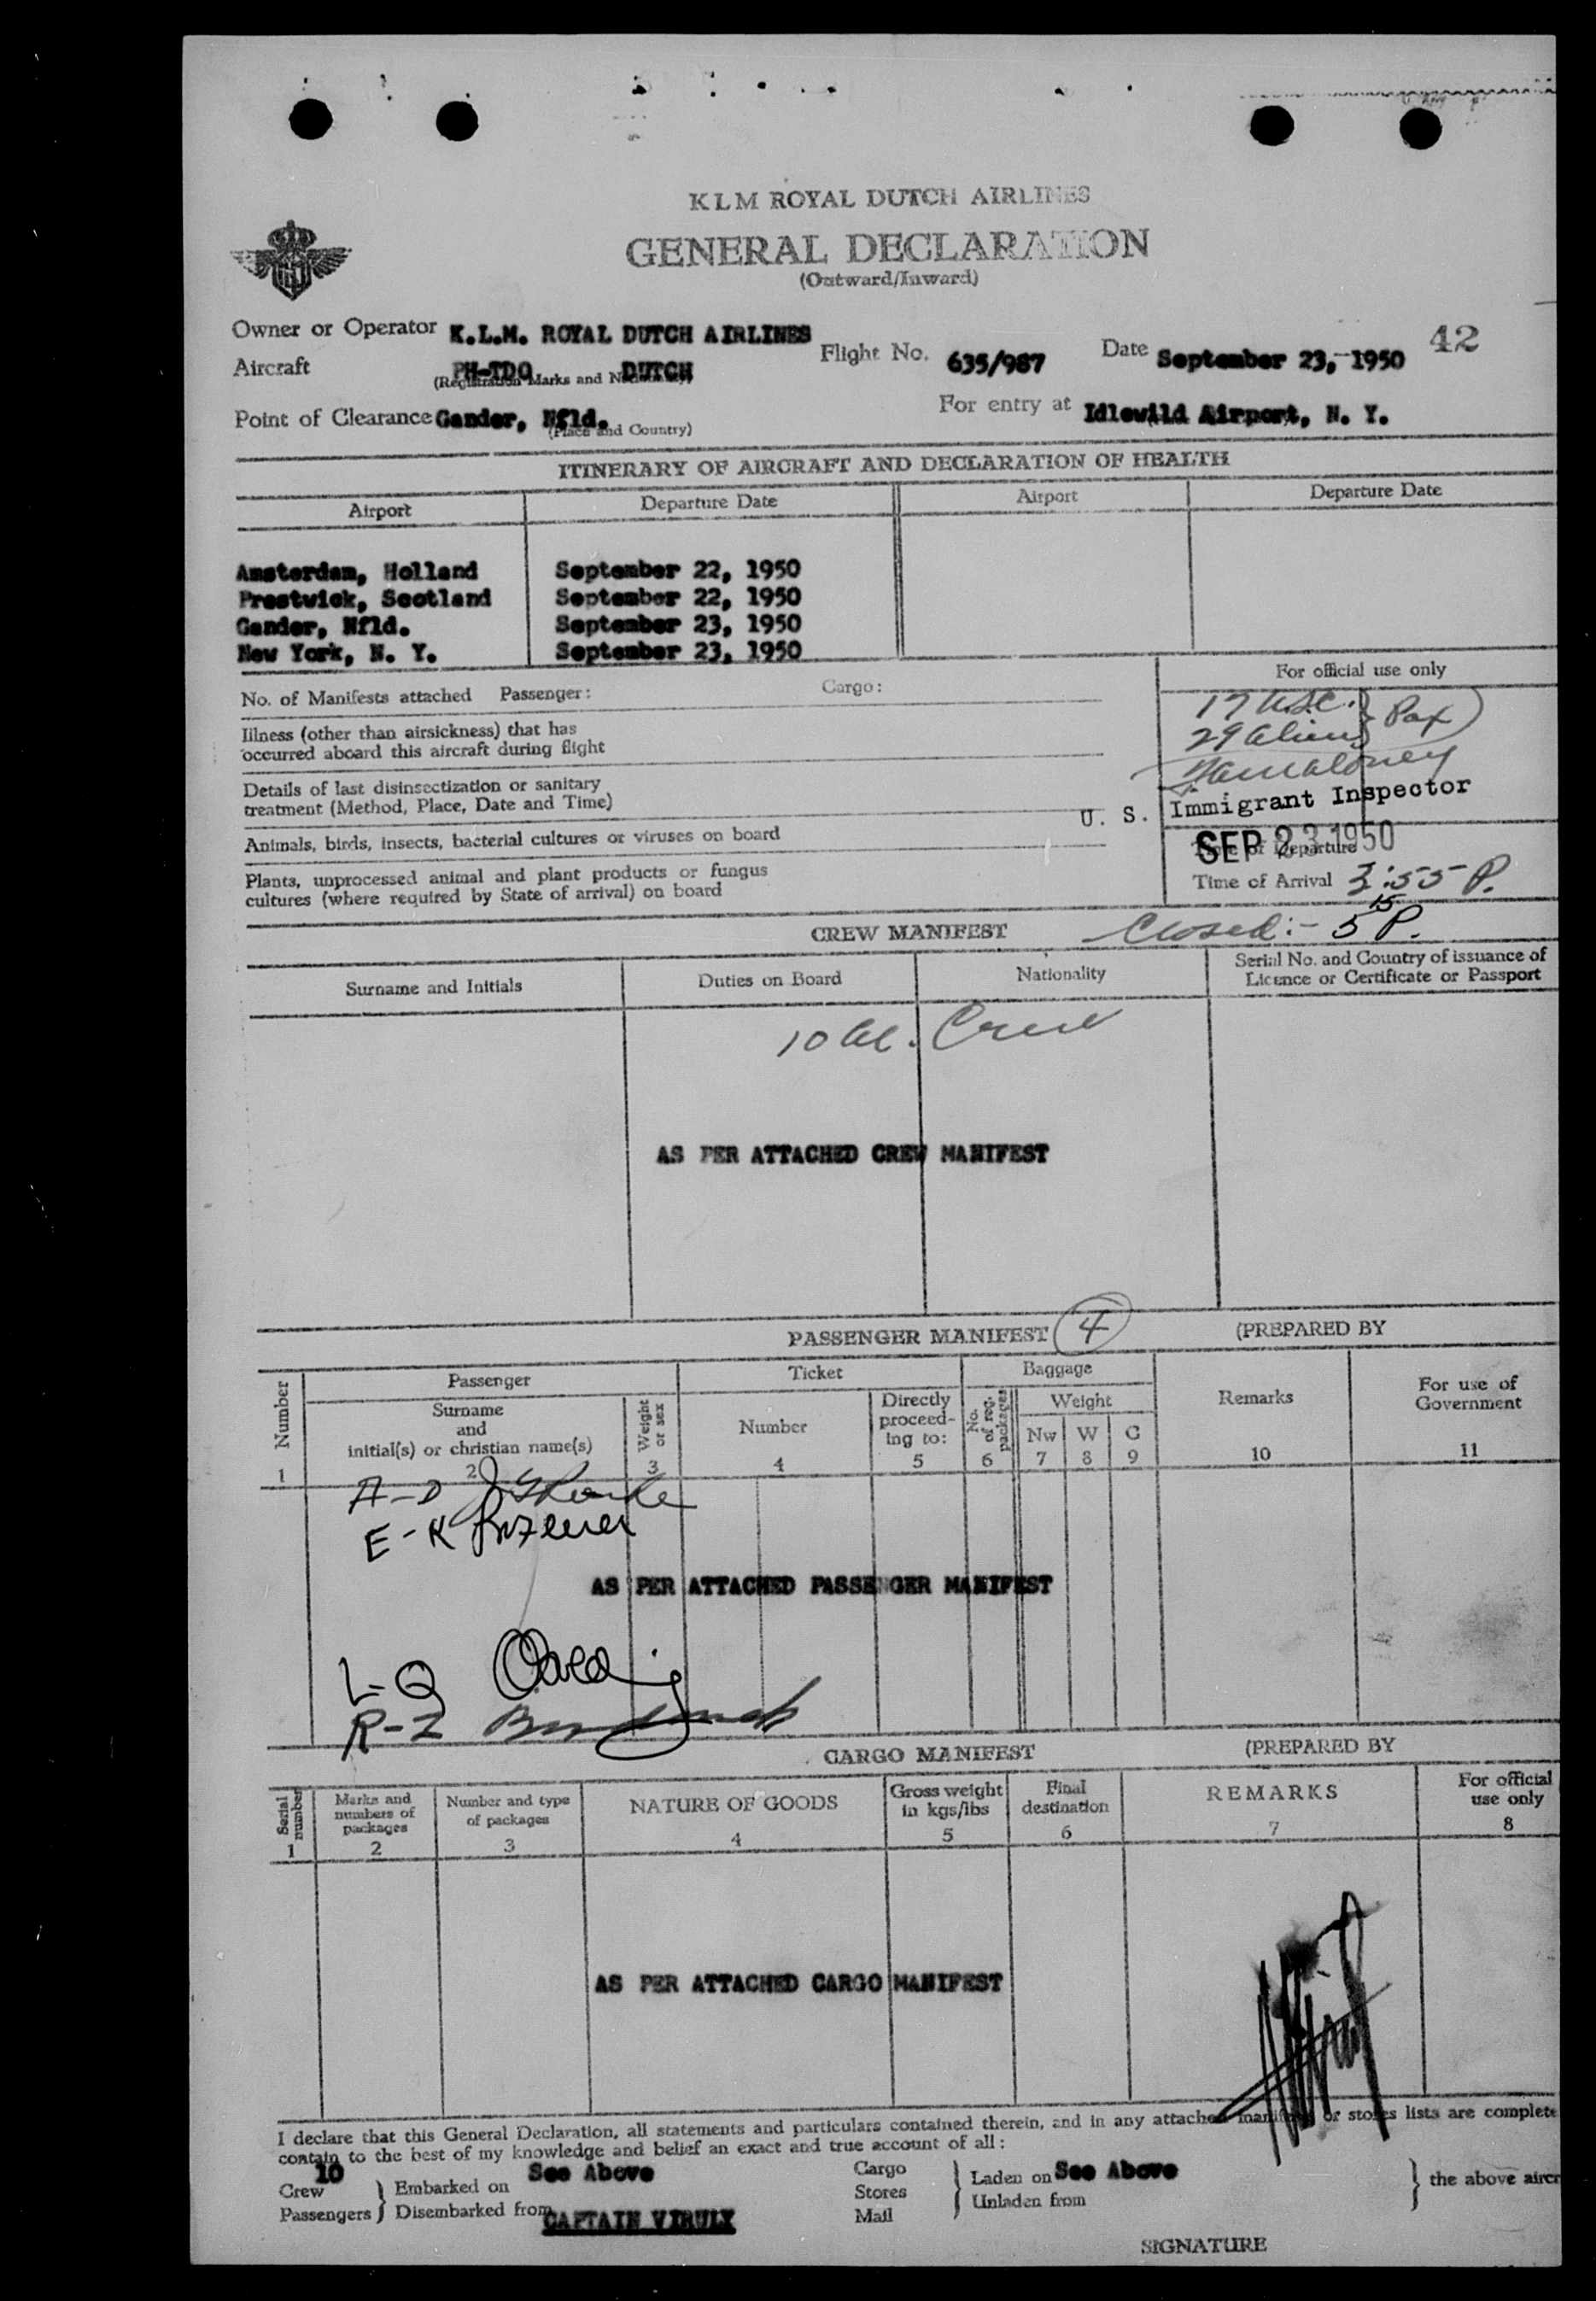 KLM ROYAL DUTCH AIRLINES
GENERAL DECLARATION
(Outward/Inward)
Owner or Operator K.L.M. ROYAL DUTCH AIRLINES
Aircraft PH-TDO DUTCH
(Registration Marks and
Flight No. 635/987
Date September 23, 1950
42
Point of Clearance Gander, Nfld.
(Place and Country)
For entry at Idlewild Airport, N. Y.
ITINERARY OF AIRCRAFT AND DECLARATION OF HEALTH
Airport Departure Date Airport Departure Date
Amsterdam, Holland September 22, 1950
Prestwick, Scotland September 22, 1950
Gander, Nfld. September 23, 1950
New York, N. Y. September 23, 1950
No. of Manifests attached Passenger: Cargo:
For official use only
Illness (other than airsickness) that has
occurred aboard this aircraft during flight
17 USC.
29 Aliens } Pax
Details of last disinsectization or sanitary
treatment (Method, Place, Date and Time)
U. S. Immigrant Inspector
Animals, birds, insects, bacterial cultures or viruses on board
SEP 23 1950
Time of Departure
Plants, unprocessed animal and plant products or fungus
cultures (where required by State of arrival) on board
Time of Arrival 3:55 P.
CREW MANIFEST
Closed:- 5 15 P.
Surname and Initials
Duties on Board
Nationality
Serial No. and Country of issuance of
Licence or Certificate or Passport
10 Al. Crew
AS PER ATTACHED CREW MANIFEST
PASSENGER MANIFEST 4 (PREPARED BY
Number
Passenger
Ticket
Baggage
Remarks
For use of
Government
Surname
and
initial(s) or christian name(s)
Weight
or sex
Number
Directly
proceed-
ing to:
No.
of reg.
packages
Weight
Nw W C
1 2 3 4 5 6 7 8 9 10 11
A-D
E-K
AS PER ATTACHED PASSENGER MANIFEST
L-Q
R-Z
CARGO MANIFEST (PREPARED BY
Serial
number
Marks and
numbers of
packages
Number and type
of packages
NATURE OF GOODS
Gross weight
in kgs/lbs
Final
destination
REMARKS
For official
use only
1 2 3 4 5 6 7 8
AS PER ATTACHED CARGO MANIFEST
I declare that this General Declaration, all statements and particulars contained therein, and in any attached manifests or stores lists are complete
contain to the best of my knowledge and belief an exact and true account of all:
10
Crew
Passengers
} Embarked on See Above
Disembarked from
CAPTAIN VIRULY
Cargo
Stores
Mail
} Laden on See Above
Unladen from
} the above aircr
SIGNATURE